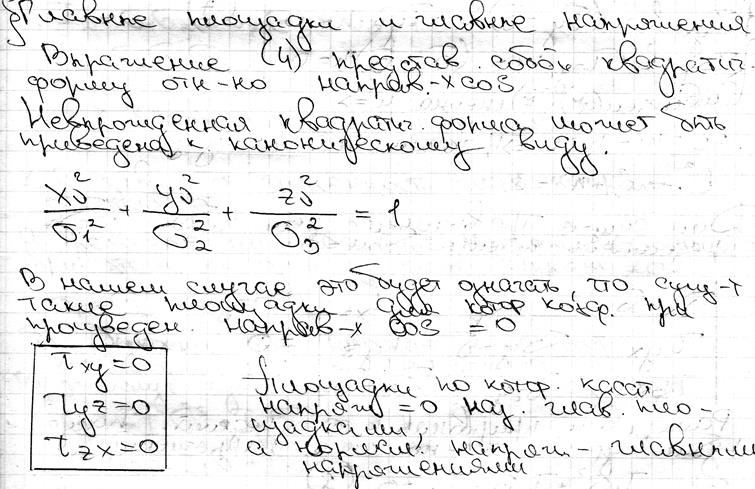 § Главные площадки и главные напряжения
Выражение (4) представ. собой квадратич.
форму отн-но направ.-х cos
Невырожденная квадратич. форма может быть
приведена к каноническому виду.
xυ²/σ1² + yυ²/σ2² + zυ²/σ3² = 1
В нашем случае это будет означать, что сущ-т
такие площадки для котор коэф. при
произведен. направ-х cos = 0
τxy=0
τyz=0
τzx=0
Площадки по котор. касат
напряж = 0 наз. глав. пло-
щадками
а нормал. напряж. - главными
напряжениями